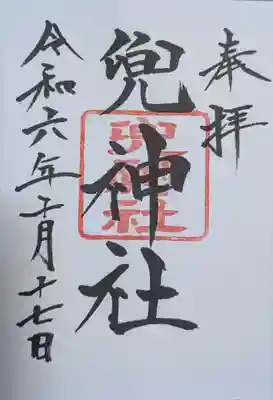 奉拝
兜神社
兜神社
令和六年十二月十七日